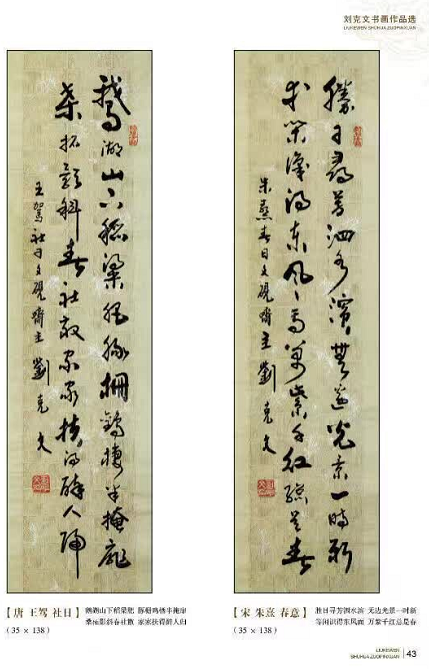 刘克文书画作品选
LIUKEWEN SHUHUA ZUOPINXUAN
鵝湖山下稻粱肥豚柵鷄棲半掩扉
桑柘影斜春社散家家扶得醉人歸
王駕社日文硯齋主劉克文
勝日尋芳泗水濱無邊光景一時新
等閑識得東風面萬紫千紅總是春
朱熹春日文硯齋主劉克文
【唐 王驾 社日】 鹅湖山下稻粱肥 豚栅鸡栖半掩扉
（35 × 138） 桑柘影斜春社散 家家扶得醉人归
【宋 朱熹 春意】 胜日寻芳泗水滨 无边光景一时新
（35 × 138） 等闲识得东风面 万紫千红总是春
LIUKEWEN
SHUHUA ZUOPINXUAN
43